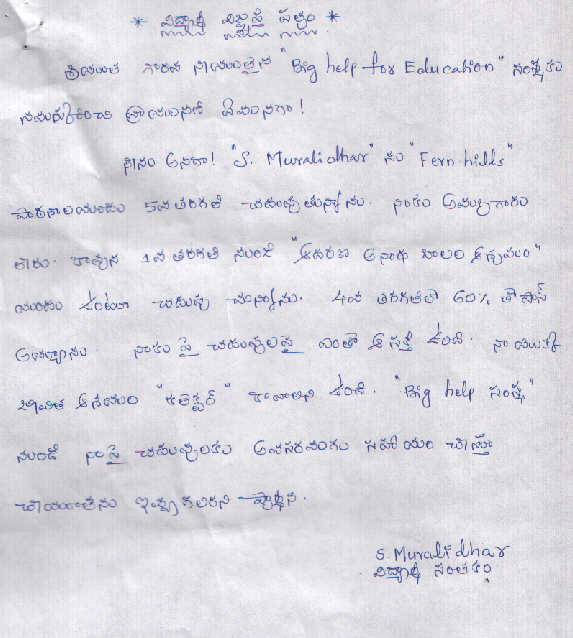 * విద్యార్థి విజ్ఞప్తి పత్రం *
శ్రీయుత గౌరవ నీయులైన "Big help for Education" సంస్థకు
నమస్కరించి వ్రాయునది ఏమనగా!
నేను అనగా! "S. Muralidhar" ను "Fern hills"
పాఠశాలయందు 5వ తరగతి చదువుతున్నాను. నాకు అమ్మగారు
లేరు. కావున 1వ తరగతి నుండి "ఆదరణ అనాథ బాలల ఆశ్రమం"
నందు ఉంటూ చదువు చున్నాను. 4వ తరగతిలో 60% తో పాస్
అయ్యాను నాకు పై చదువులపై ఎంతో ఆసక్తి ఉంది. నా యొక్క
జీవిత ఆశయం "కలెక్టర్" కావాలని ఉంది. "Big help సంస్థ"
నుండి నాపై చదువులకు అవసరమగు సహాయం చేస్తూ
చేయూతను ఇవ్వగలరని ప్రార్థన.
S. Muralidhar
విద్యార్థి సంతకం